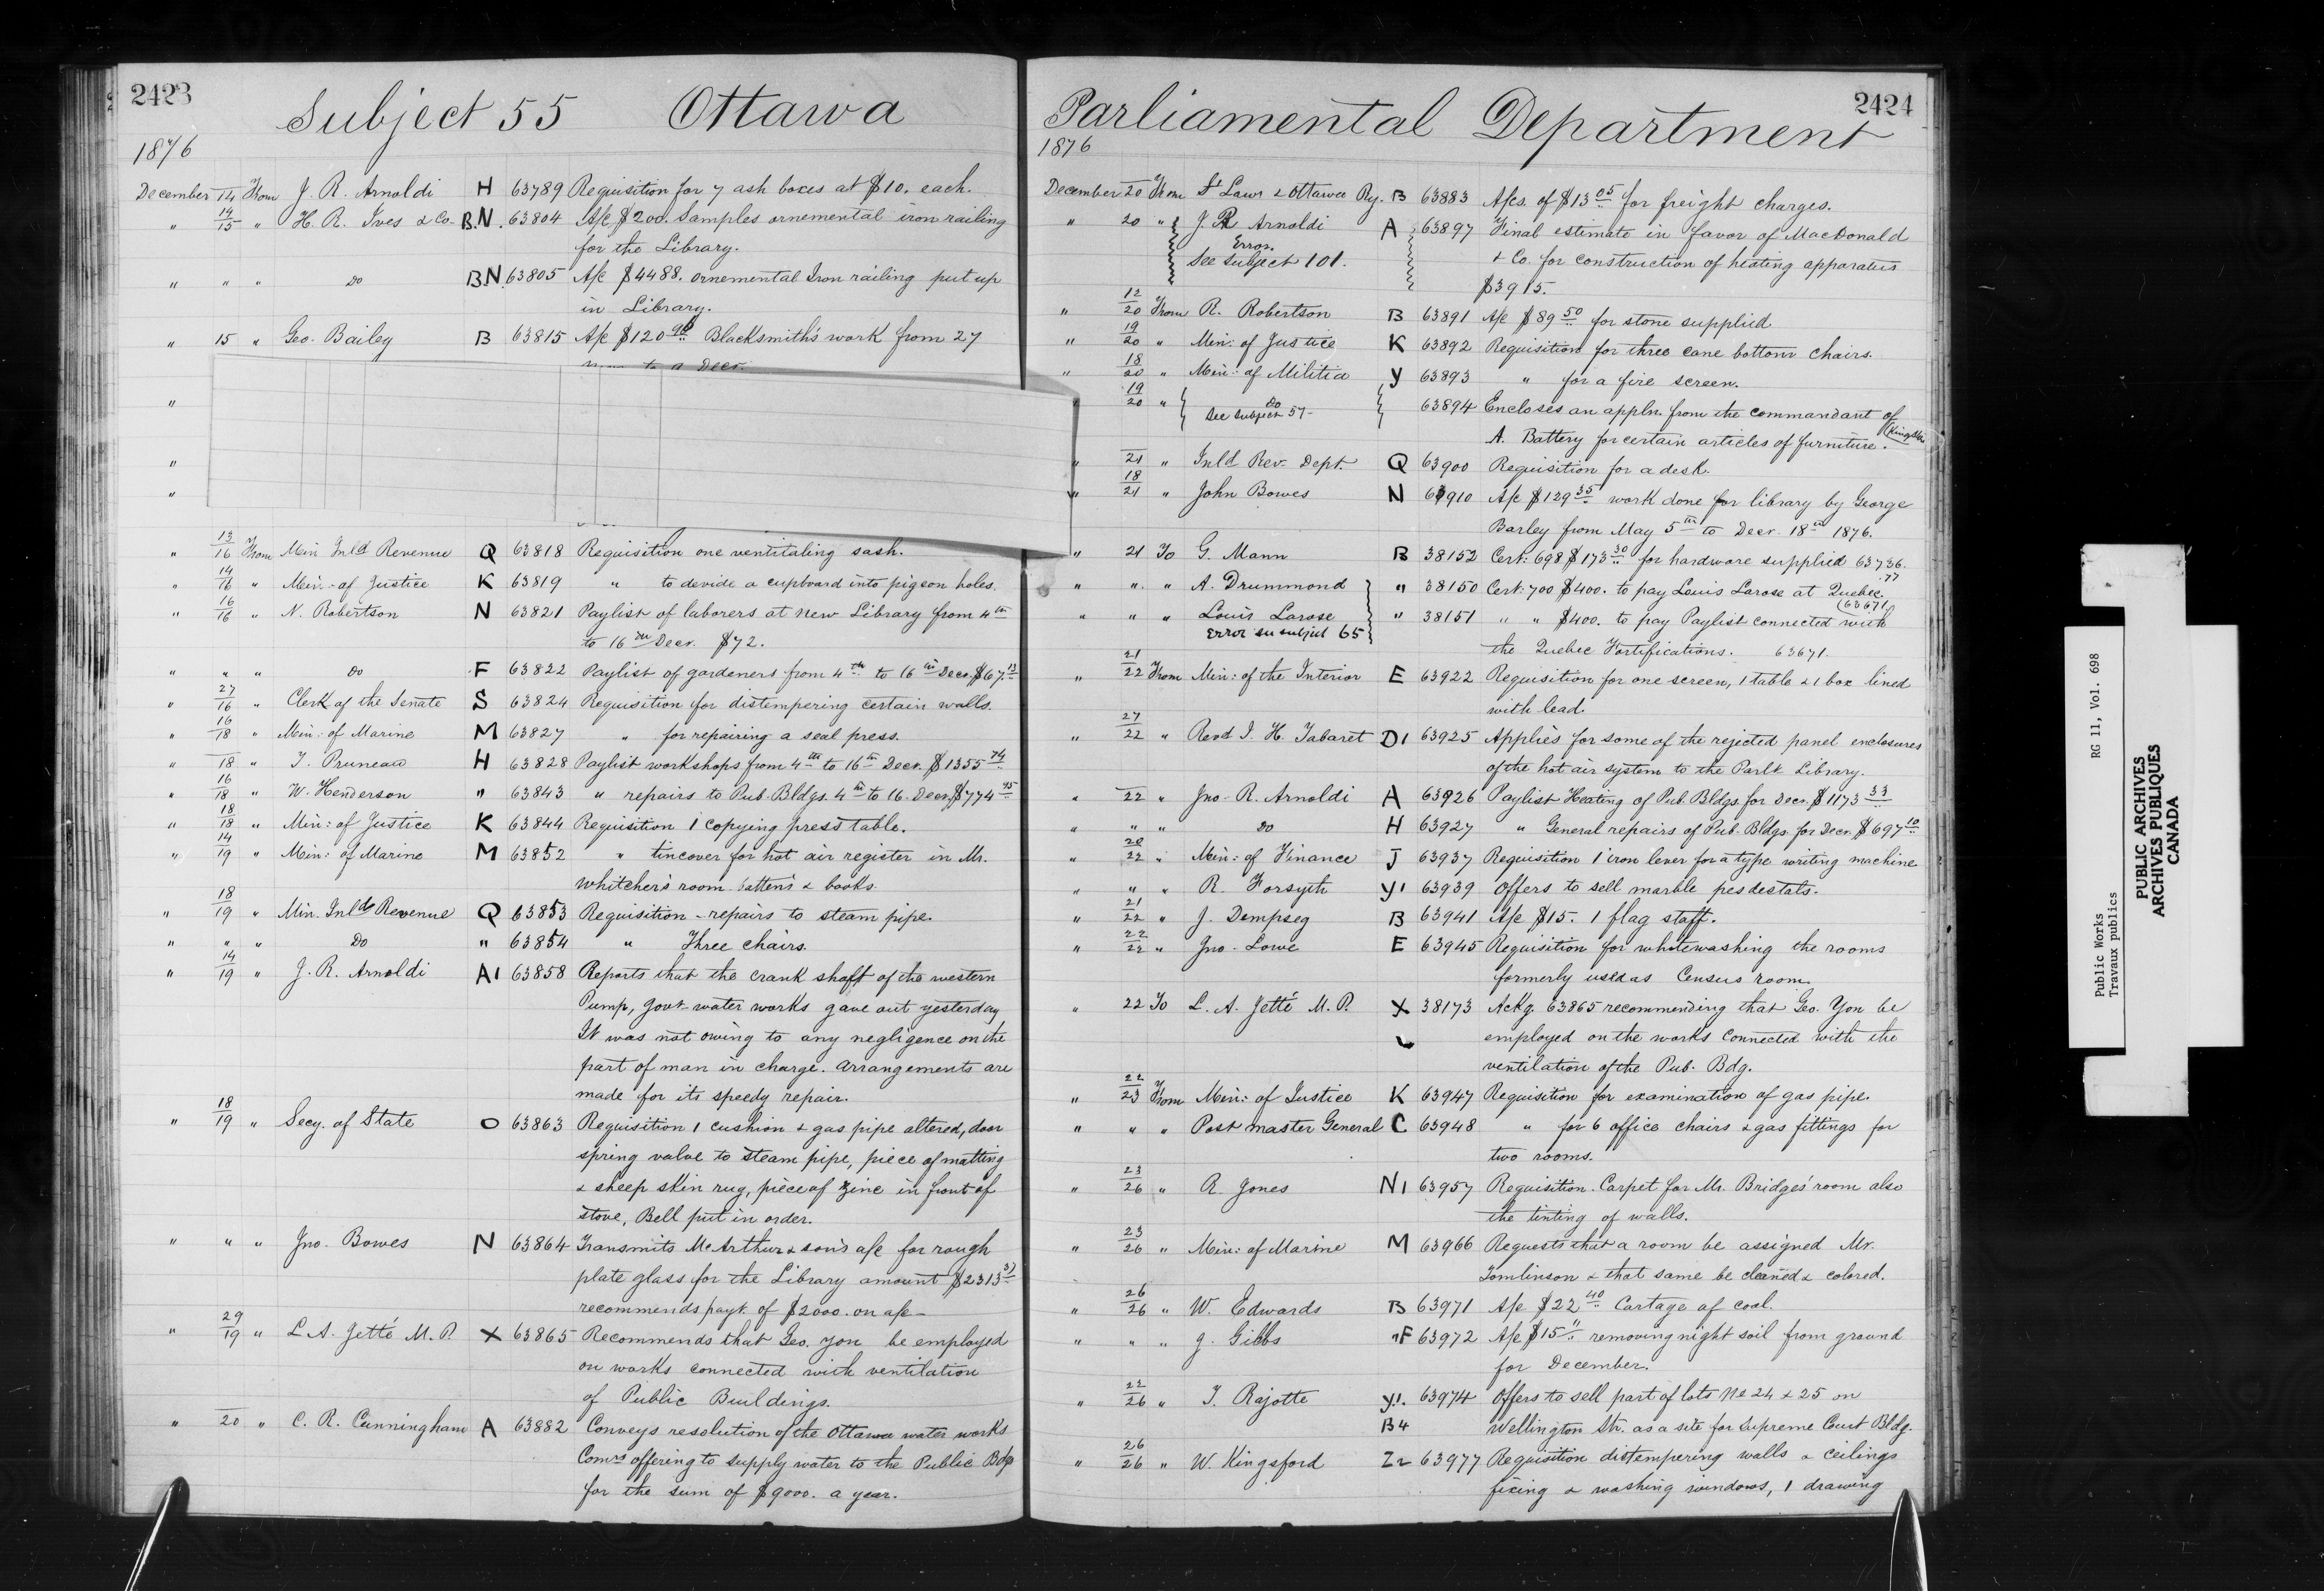 2423
Subject 55 Ottawa
1876
December 14 From J. R. Arnoldi H 63789 Requisition for 7 ash boxes at $10. each.
" 14/15 " H. R. Ives & Co. B.N. 63804 A/c $200. Samples ornemental iron railing
for the Library.
" " " Do B.N. 63805 A/c $4488. ornemental Iron railing put up
in Library.
" 15 " Geo. Bailey B 63815 A/c $120 90 Blacksmith's work from 27
to 9 Decr.
"
"
"
" 13/16 From Min Inld Revenue Q 63818 Requisition one ventitaling sash.
" 14/16 " Min: of Justice K 63819 " to devide a cupboard into pigeon holes.
" 16/16 " N. Robertson N 63821 Paylist of laborers at new Library from 4th
to 16th Decr. $72.
" " " Do F 63822 Paylist of gardeners from 4th to 16th Decr. $67.13
" 27/16 " Clerk of the Senate S 63824 Requisition for distempering certain walls.
" 16/18 " Min: of Marine M 63827 " for repairing a seal press.
" 18 " T. Pruneau H 63828 Paylist workshops from 4th to 16th Decr. $1355 74
" 16/18 " W. Henderson " 63843 " repairs to Pub. Bldgs. 4th to 16. Decr. $774 95
" 18/18 " Min: of Justice K 63844 Requisition 1 copying press table.
" 14/19 " Min: of Marine M 63852 " tin cover for hot air register in Mr.
Whitcher's room & books.
" 18/19 " Min. Inld Revenue Q 63853 Requisition - repairs to steam pipe.
" " " Do " 63854 " Three chairs.
" 14/19 " J. R. Arnoldi A1 63858 Reports that the crank shaft of the western
Pump, Govt water works gave out yesterday
It was not owing to any negligence on the
part of man in charge. Arrangements are
made for its speedy repair.
" 18/19 " Secy. of State O 63863 Requisition 1 cushion & gas pipe altered, door
spring valve to steam pipe, piece of matting
& sheep skin rug, piece of zinc in front of
stove, Bell put in order.
" " " Jno. Bowes N 63864 Transmits McArthur & son's a/c for rough
plate glass for the Library amount $2313
recommends payt. of $2000. on a/c -
" 29/19 " L. A. Jetté M. P. X 63865 Recommends that Geo. You be employed
on works connected with ventilation
of Public Buildings.
" 20 " C. R. Cunningham A 63882 Conveys resolution of the Ottawa water works
Comrs offering to supply water to the Public Bdgs
for the sum of $9000. a year.
2424
Parliamental Department
1876
December 20 From St Lawr & Ottawa Ry. B 63883 A/cs. of $13 05 for freight charges.
" 20 " J. R Arnoldi A 63897 Final estimate in favor of MacDonald
Error.
See Subject 101. & Co. for construction of heating apparatus
$3915.
" 12/20 From R. Robertson B 63891 A/c $89 50 for stone supplied
" 19/20 " Min: of Justice K 63892 Requisition for three cane bottom chairs.
" 18/20 " Min: of Militia Y 63893 " for a fire screen.
" 19/20 " Do 63894 Encloses an appln. from the commandant of
See Subject 57- A. Battery for certain articles of furniture. (Kingston
" 21 " Inld Rev. Dept. Q 63900 Requisition for a desk.
" 18/21 " John Bowes N 63910 A/c $129 35 work done for library by George
Barley from May 5th to Decr. 18th 1876.
" 21 To G. Mann B 38152 Cert: 698 $173 30 for hardware supplied 63736.
77
" " " A. Drummond " 38150 Cert: 700 $400. to pay Louis Larose at Quebec
(63671)
" " " Louis Larose " 38151 " " $400. to pay Paylist connected with
Error su subject 65 the Quebec Fortifications. 63671.
" 21/22 From Min: of the Interior E 63922 Requisition for one screen, 1 table & 1 box lined
with lead.
" 27/22 " Revd I. H. Tabaret D1 63925 Applies for some of the rejected panel enclosures
of the hot air system to the Parlt Library.
" 22 " Jno. R. Arnoldi A 63926 Paylist Heating of Pub. Bldgs. for Decr. $1173 33
" " " Do H 63927 " General repairs of Pub. Bldgs. for Decr. $697 10
" 20/22 " Min: of Finance J 63937 Requisition 1 iron lever for a type writing machine
" " " R. Forsyth Y1 63939 Offers to sell marble pesdestals.
" 21/22 " J. Dempseg B 63941 A/c $15. 1 flag staff.
" 22/22 " Jno. Lowe E 63945 Requisition for whitewashing the rooms
formerly used as Census room.
" 22 To L. A. Jetté M. P. X 38173 Ackg. 63865 recommending that Geo. You be
employed on the works connected with the
ventilation of the Pub. Bdg.
" 22/23 From Min: of Justice K 63947 Requisition for examination of gas pipe.
" " " Post master General C 63948 " for 6 office chairs & gas fittings for
two rooms.
" 23/26 " R. Jones N1 63957 Requisition. Carpet for Mr. Bridges' room also
the tinting of walls.
" 23/26 " Min: of Marine M 63966 Requests that a room be assigned Mr.
Tomlinson & that same be cleaned & colored.
" 26/26 " W. Edwards B 63971 A/c $22 40 Cartage of coal.
" " " J. Gibbs "F 63972 A/c $15 " removing night soil from ground
for December.
" 22/26 " T. Rajotte Y1. 63974 Offers to sell part of lots No 24 & 25 on
B4 Wellington Str. as a site for Supreme Court Bldg.
" 26/26 " W. Kingsford Z2 63977 Requisition distempering walls & ceilings
fixing & washing windows, 1 drawing
Public Works RG 11, Vol. 698
Travaux publics
PUBLIC ARCHIVES
ARCHIVES PUBLIQUES
CANADA